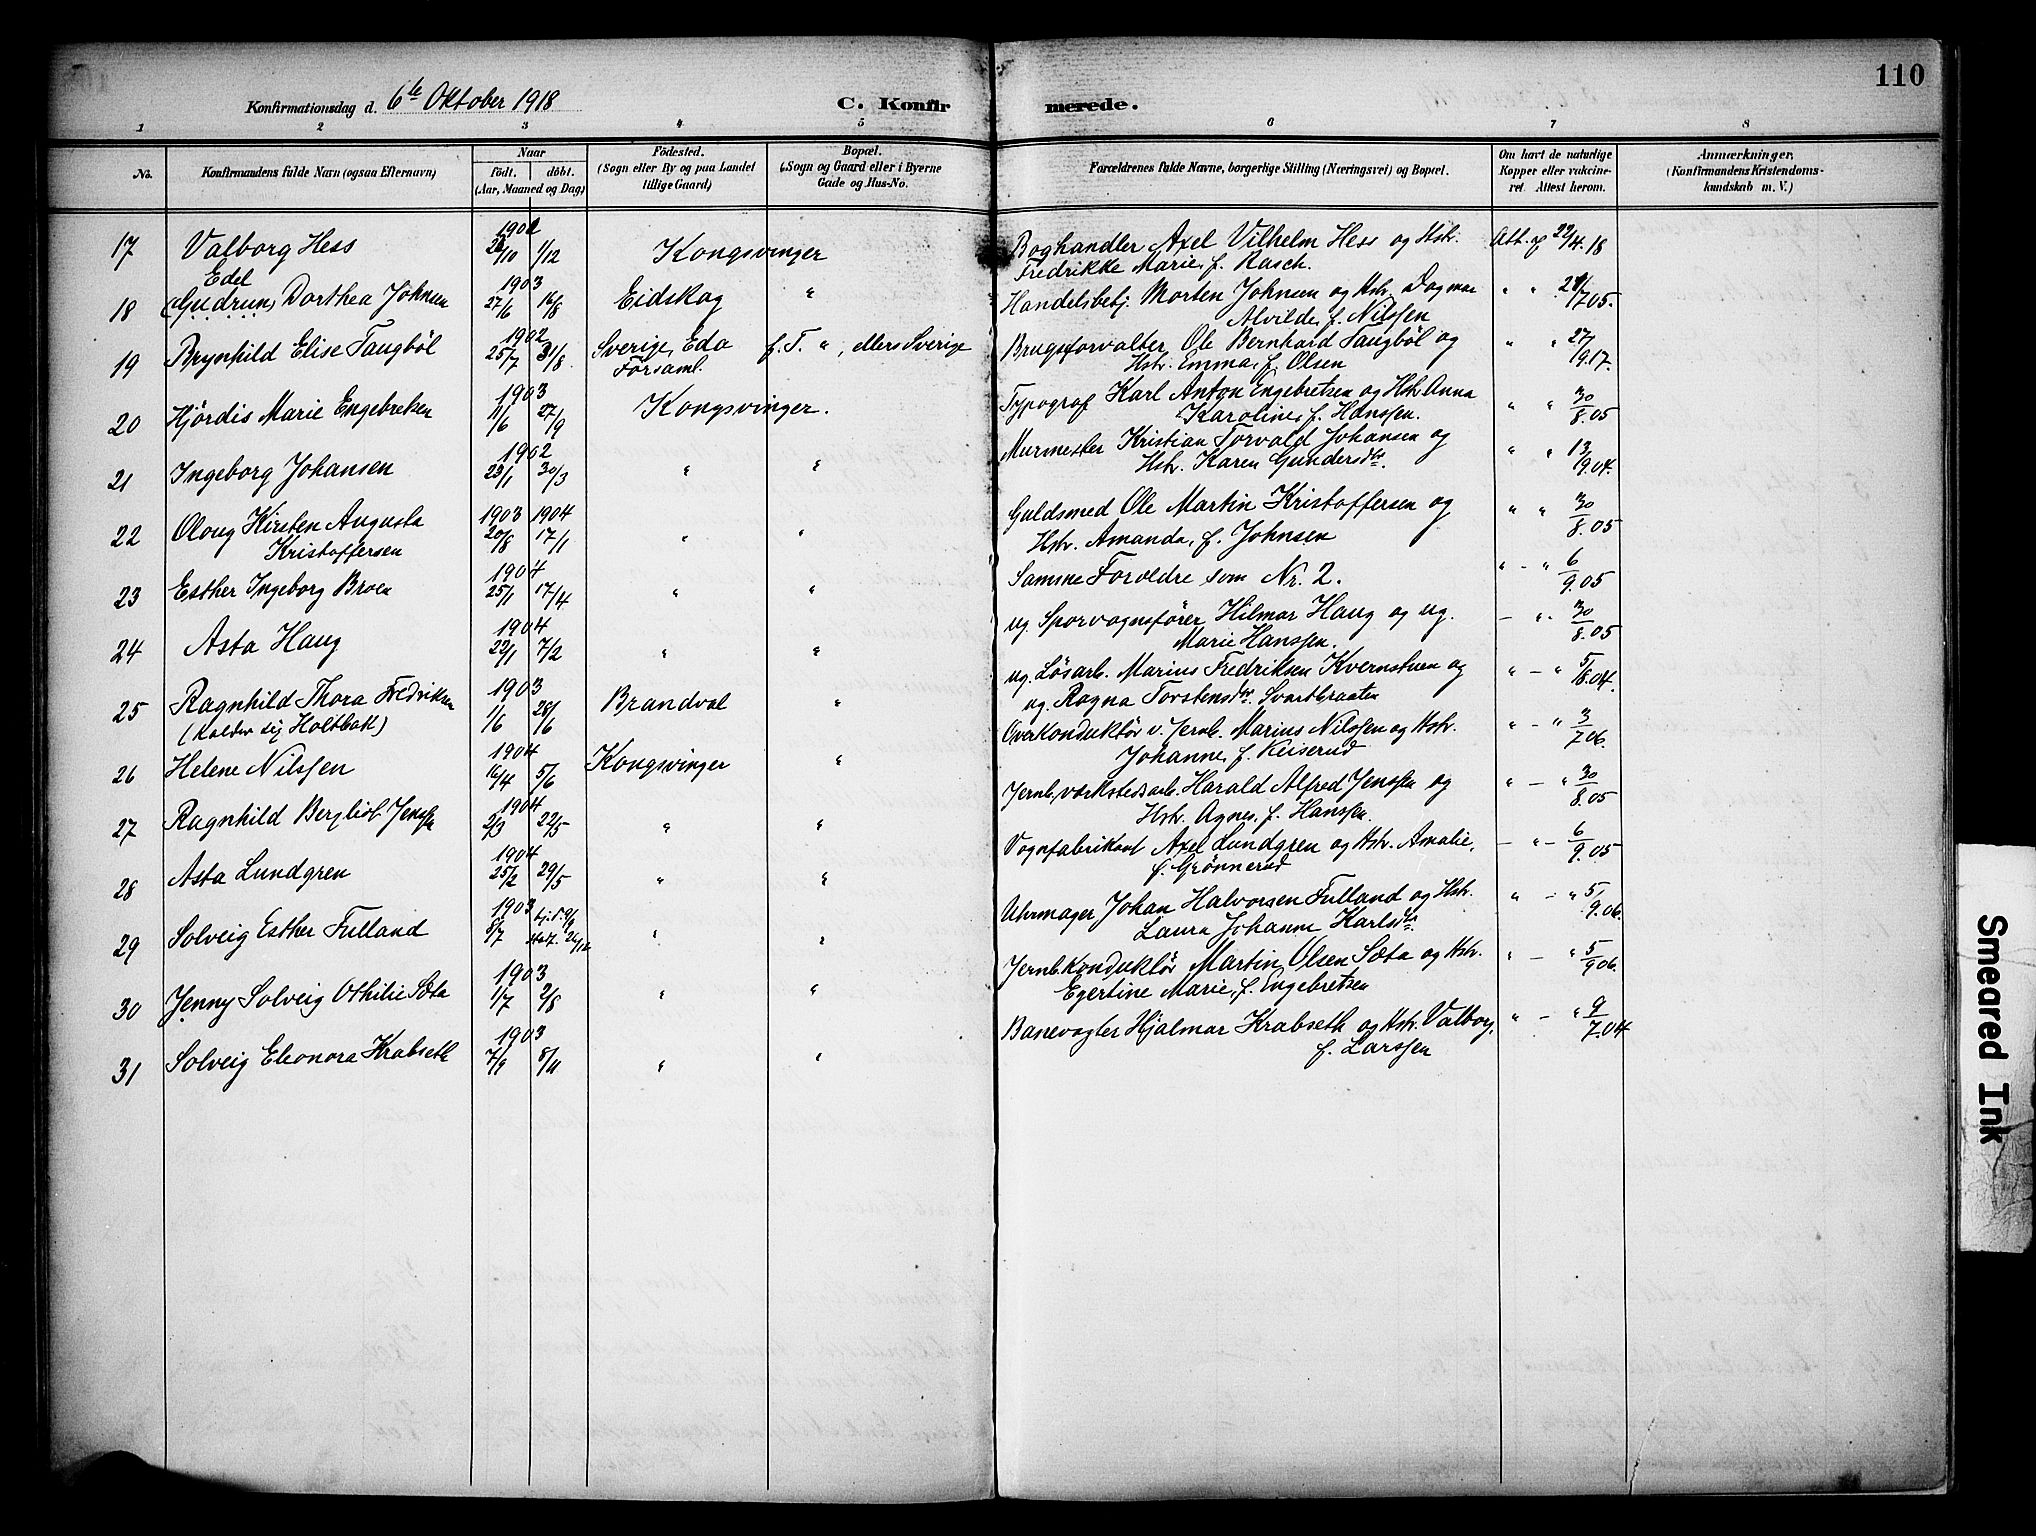 110
Konfirmationsdag d. 6te Oktober 1918
C. Konfirmerede.
1 2 3 4 5 6 7 8
No.
Konfirmandens fulde Navn (ogsaa Efternavn)
Naar
født. døbt.
(Aar, Maaned og Dag)
Fødested.
(Sogn eller By og paa Landet
tillige Gaard)
Bopæl.
(Sogn og Gaard eller i Byerne
Gade og Hus-No.
Forældrenes fulde Navne, borgerlige Stilling (Næringsvei) og Bopæl.
Om havt de naturlige
Kopper eller vakcine-
ret. Attest herom.
Anmærkninger.
(Konfirmandens Kristendoms-
kundskab m. V.)
17 Valborg Hess 1/12 Kongsvinger Boghandler Axel Vilhelm Hess og Hstr. Att. af 22/4.18
Fredrikke Marie, f. Rasch.
Edel 1903
18 (Gudrun) Dorthea Johnsen 27/6 16/8 Eidskog " Handelsbetj. Morten Johnsen og Hstr. Dagmar " "
Alvilde, f. Nilssen
1902
19 Brynhild Elise Taugbøl 25/7 31/8 Sverige, Eda f. T. ", ellers Sverige Brugsforvalter Ole Bernhard Taugbøl og " " 27/9.17.
Församl. Hstr. Emma, f. Olsen
1903
20 Hjördis Marie Engebretsen 11/6 27/9 Kongsvinger. Typograf Karl Anton Engebretsen og Hstr. Anna " " 30/8.05
Karoline, f. Hanssen.
1902
21 Ingeborg Johansen 23/1 30/3 " " Murmester Kristian Torvald Johansen og " " 13/9.04.
Hstr. Karen Gundersdtr.
1903 1904
22 Oloug Kirsten Augusta 20/8 17/1 " " Guldsmed Ole Martin Kristoffersen og " " 30/8.05
Kristoffersen Hstr. Amanda, f. Johnsen
1904
23 Esther Ingeborg Broen 25/1 17/4 " " Samme Forældre som Nr. 2. " - " 6/9.05
1904
24 Asta Haug 22/1 7/2 " " ug. Sporvognsfører Hilmar Haug og ug. - " 30/8.05
Marie Hanssen.
1903
25 Ragnhild Thora Fredriksen 1/6 28/6 Brandval " ug. Løsarb. Marius Fredriksen Kvernstuen og " - " 5/8.04.
(Kalder sig Holtbak) ug. Ragna Torstensdtr. Svartbraaten
1904
26 Helene Nilssen 16/4 5/6 Kongsvinger " Overkonduktør v. Jernb. Marius Nilssen og Hstr. " - " 3/7.06.
Johanne, f. Keiserud
1904
27 Ragnhild Bergliot Jenssen 2/3 22/5 " " Jernb.værkstedsarb. Harald Alfred Jenssen og " - " 30/8.05
Hstr. Agnes, f. Hanssen.
1904
28 Asta Lundgren 25/2 29/5 " " Vognfabrikant Axel Lundgren og Hstr. Amalie, - " - 6/9.05
f. Grønnerud
1903
29 Solveig Esther Fulland 8/7 " " Uhrmager Johan Halvorsen Fulland og Hstr. " - " 5/9.06.
Laura Johanne Karlsdtr.
1903
30 Jenny Solveig Othilie Sæta 1/7 2/8 " " Jernb.konduktør Martin Olsen Sæta og Hstr. " - " 5/9.06.
Egertine Marie, f. Engebretsen
1903
31 Solveig Eleonora Krabseth 7/9 8/11 " " Banevogter Hjalmar Krabseth og Hstr. Valborg, " - " 9/7.04
f. Larssen
Smeared Ink